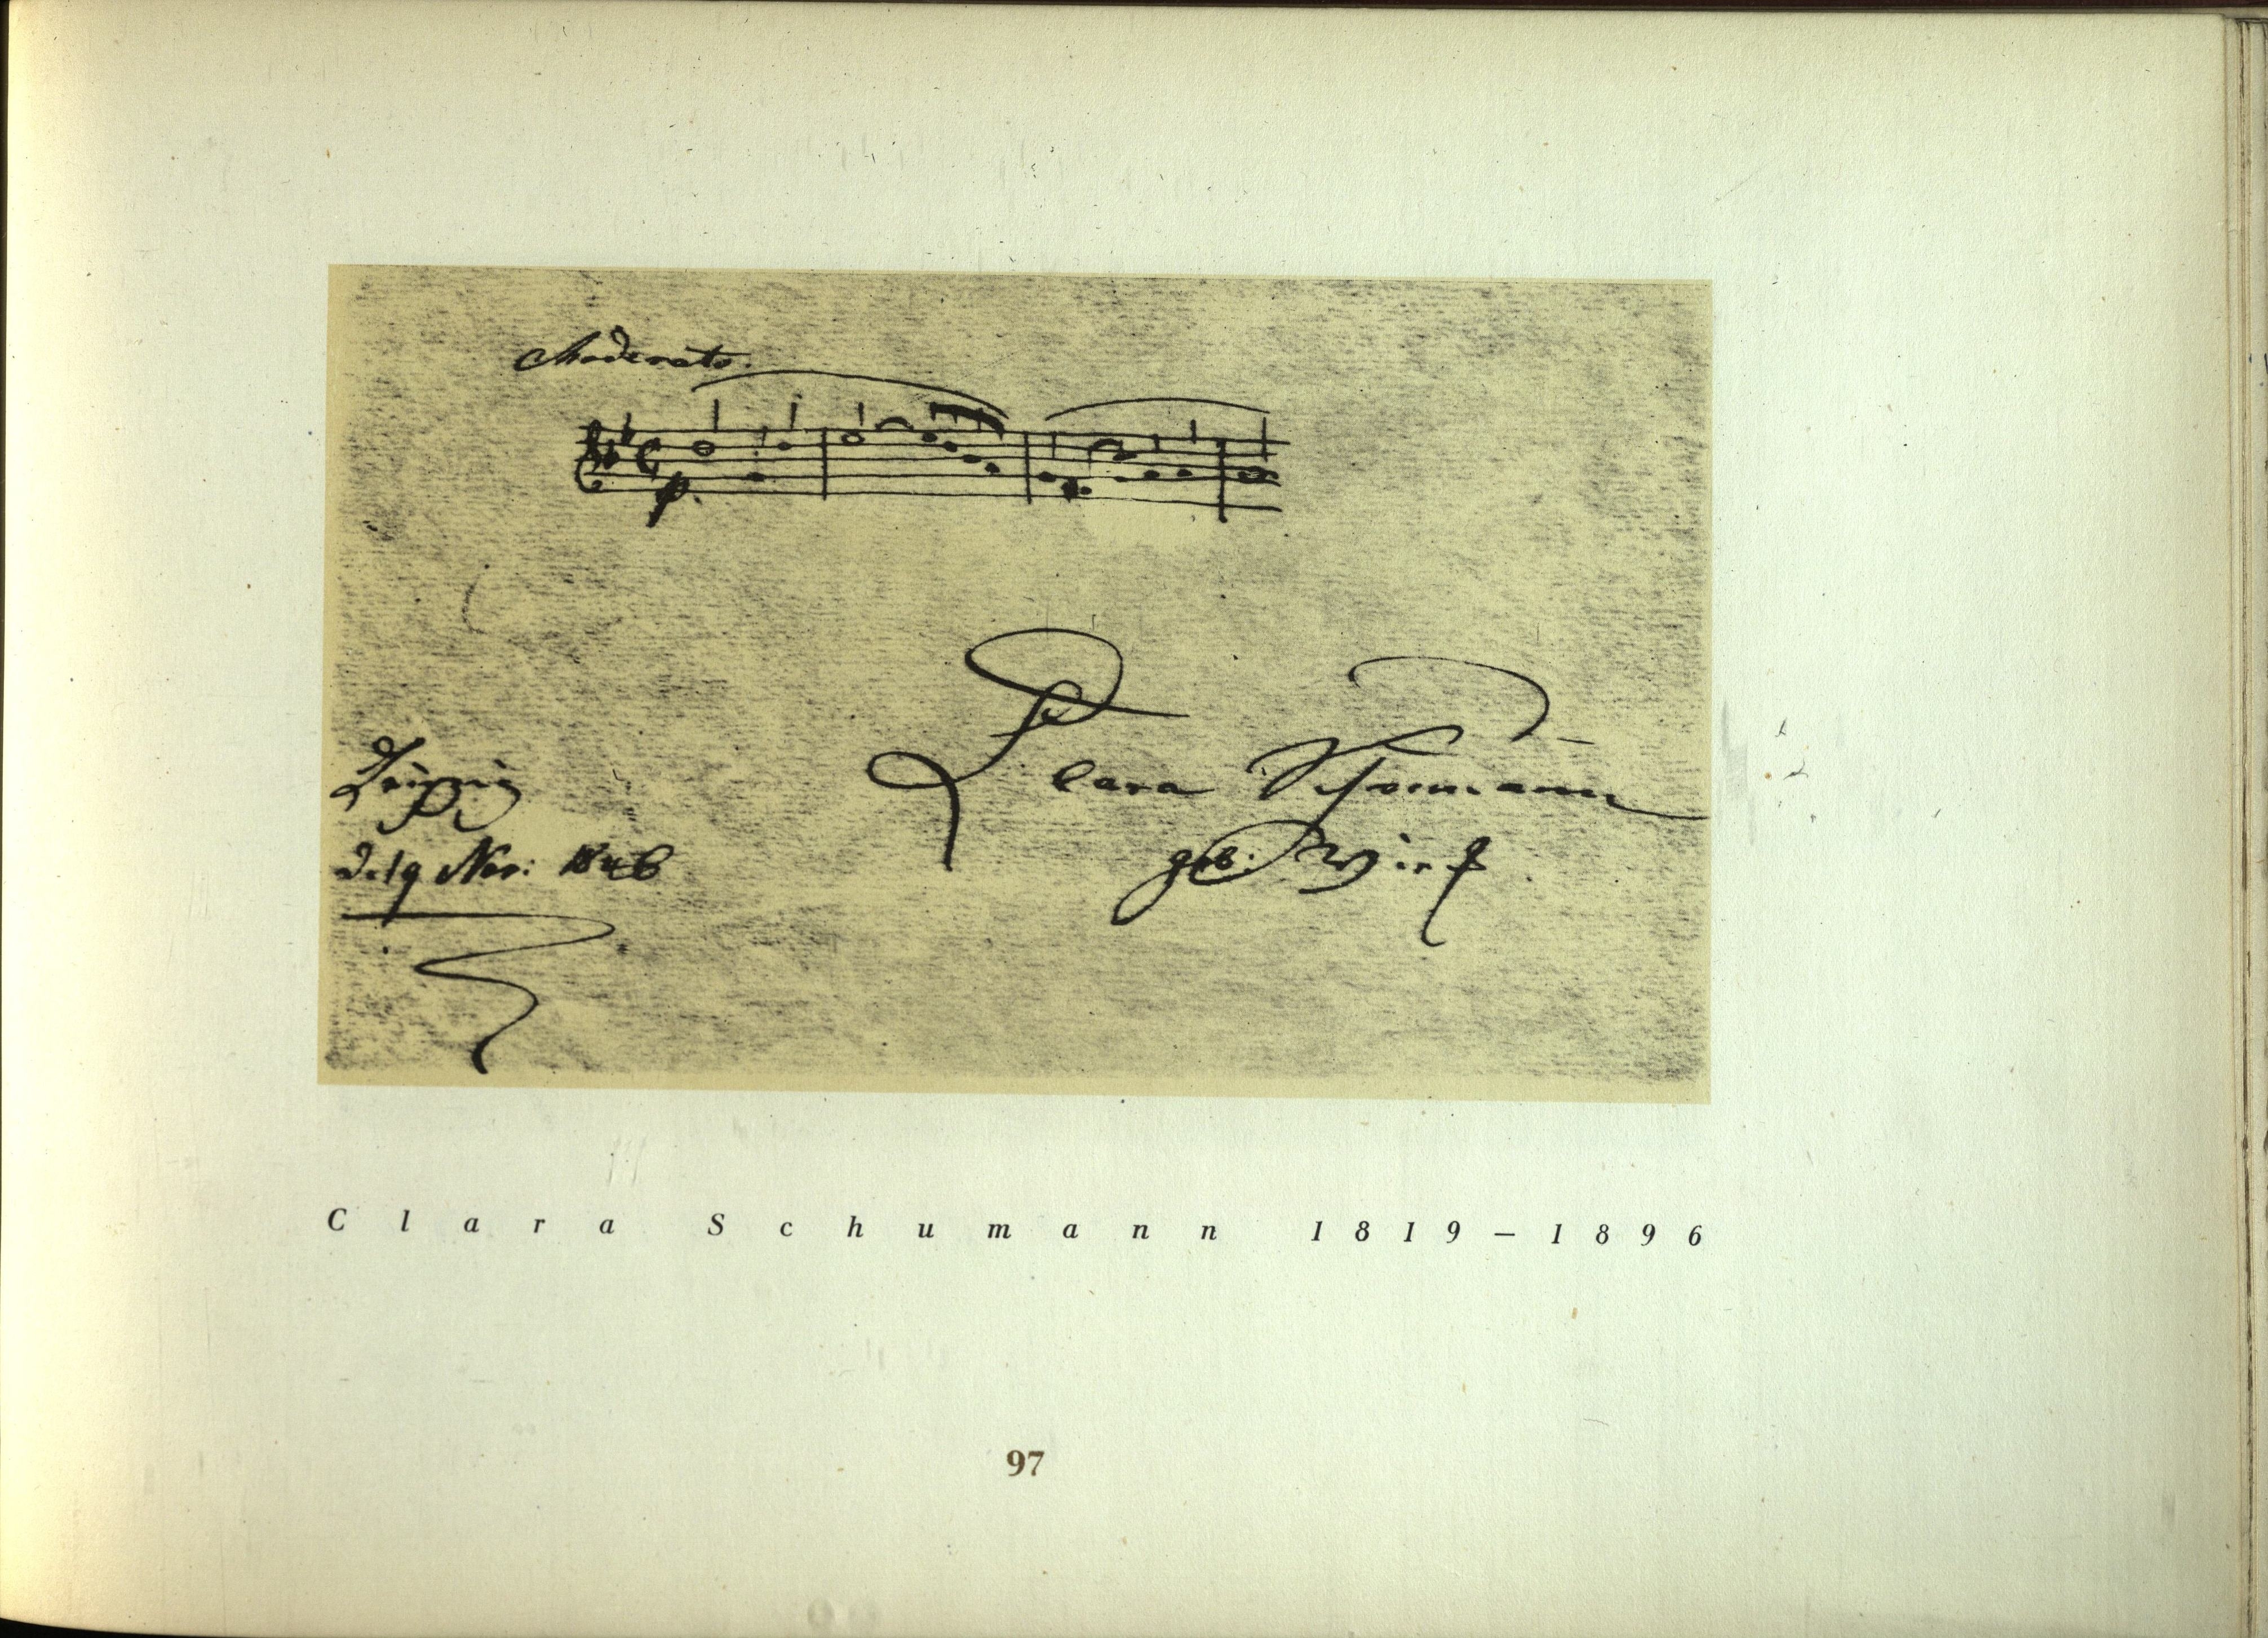 Moderato.
p.
Leipzig
Clara Schumann
geb. Wieck
d. 19 Nov: 1846
Clara Schumann 1819–1896
97